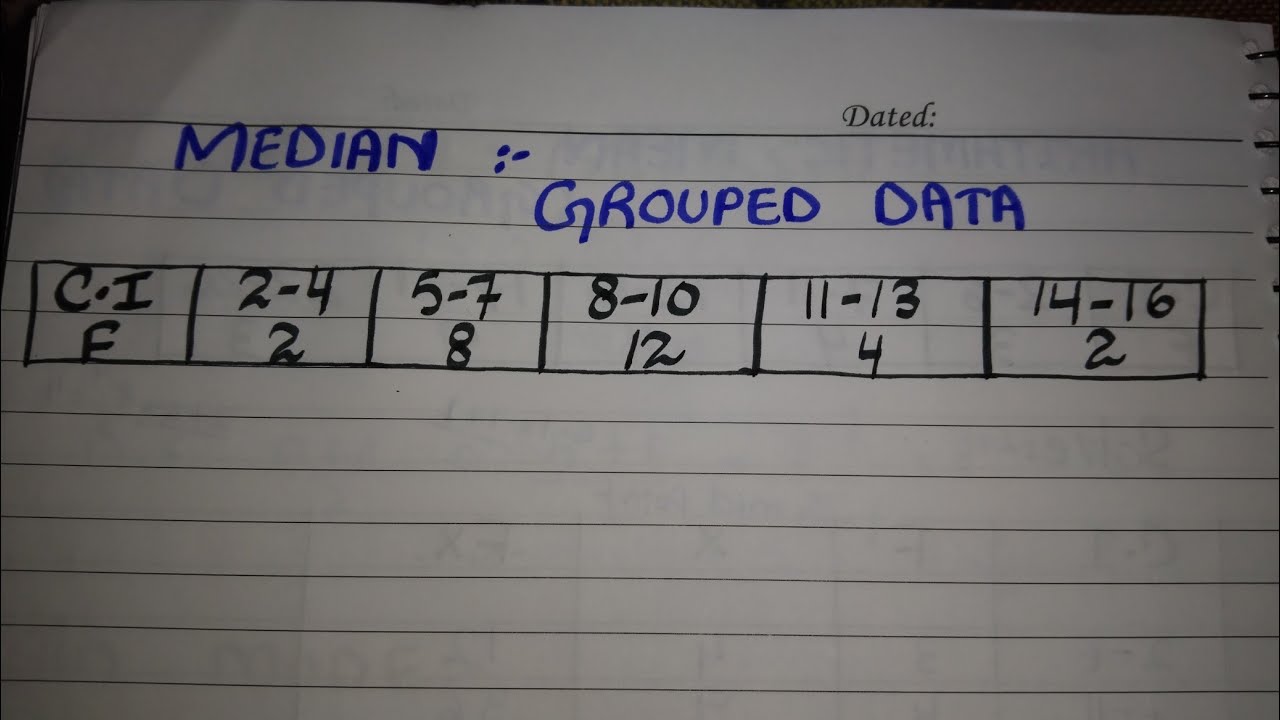 Dated:
MEDIAN :-
GROUPED DATA
C.I 2-4 5-7 8-10 11-13 14-16
F 2 8 12 4 2